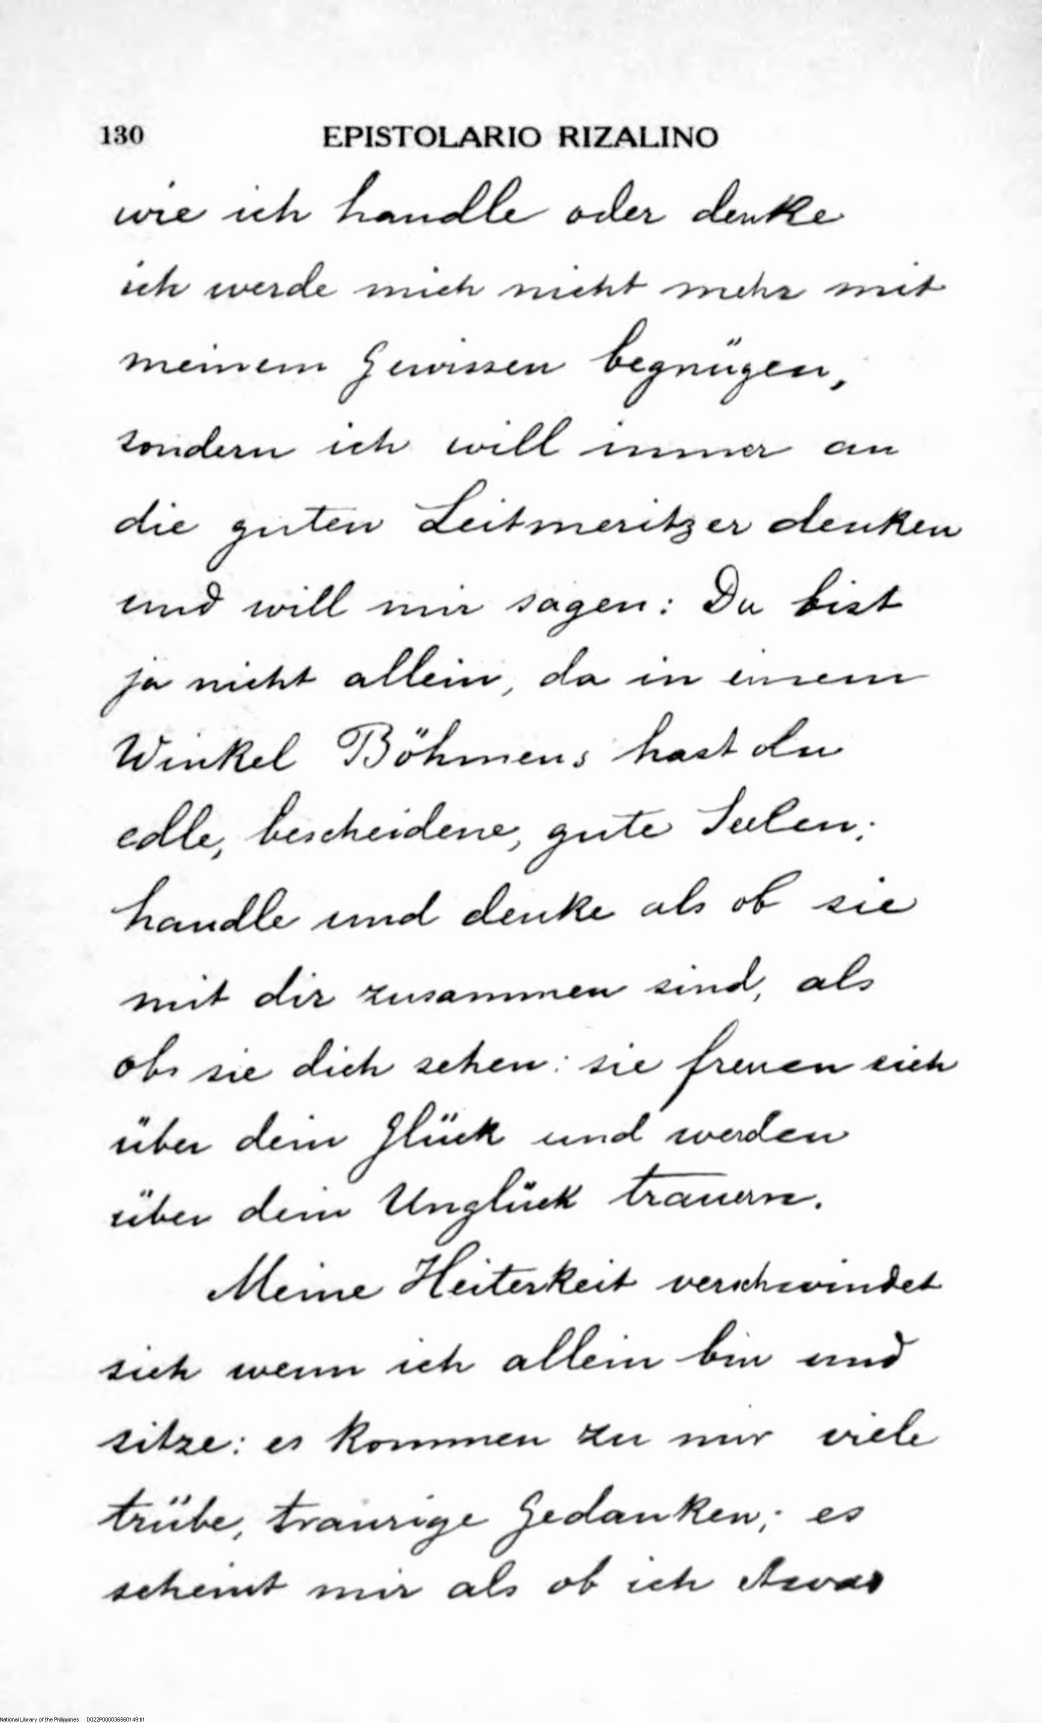 130
EPISTOLARIO RIZALINO
wie ich handle oder denke
ich werde mich nicht mehr mit
meinem Gewissen begnügen,
sondern ich will immer an
die guten Leitmeritzer denken
und will mir sagen: Du bist
ja nicht allein, da in einem
Winkel Böhmens hast du
edle, bescheidene, gute Seelen;
handle und denke als ob sie
mit dir zusammen sind, als
ob sie dich sehen: sie freuen sich
über dein Glück und werden
über dein Unglück trauern.
Meine Heiterkeit verschwindet
sich wenn ich allein bin und
sitze: es kommen zu mir viele
trübe, traurige Gedanken; es
scheint mir als ob ich etwas
National Library of the Philippines